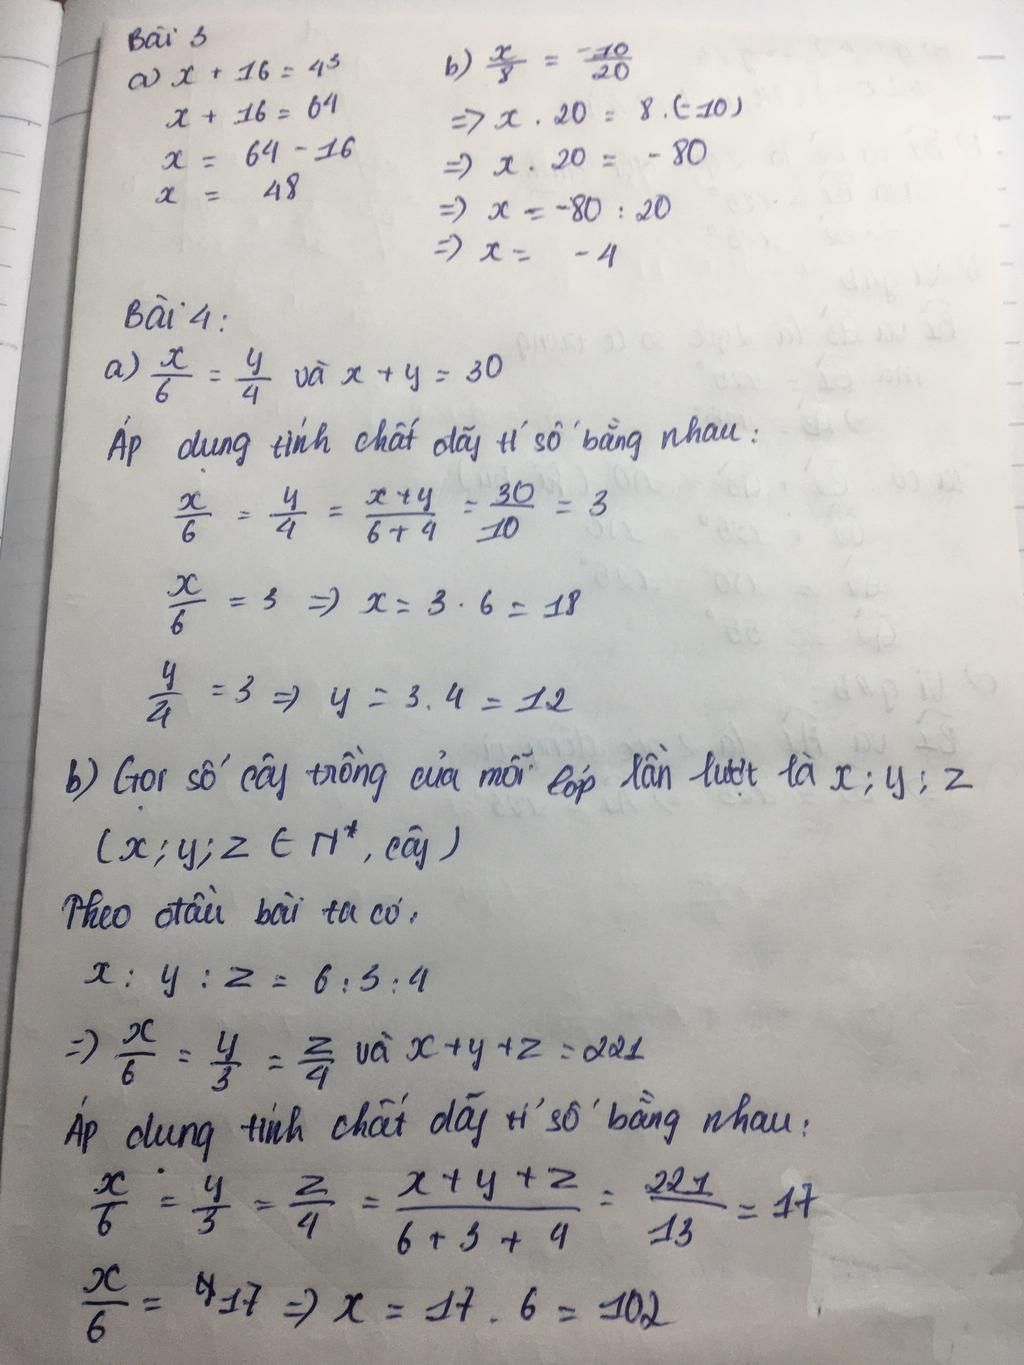 Bài 3
a) x + 16 = 4³
x + 16 = 64
x = 64 - 16
x = 48
b) x/8 = -10/20
=> x . 20 = 8 . (-10)
=> x . 20 = - 80
=> x = -80 : 20
=> x = - 4
Bài 4:
a) x/6 = y/4 và x + y = 30
Áp dụng tính chất dãy tỉ số bằng nhau:
x/6 = y/4 = x+y/6+4 = 30/10 = 3
x/6 = 3 => x = 3 . 6 = 18
y/4 = 3 => y = 3 . 4 = 12
b) Gọi số cây trồng của mỗi lớp lần lượt là x ; y ; z
(x ; y ; z ∈ N*, cây)
Theo đầu bài ta có,
x : y : z = 6 : 3 : 4
=> x/6 = y/3 = z/4 và x + y + z = 221
Áp dụng tính chất dãy tỉ số bằng nhau:
x/6 = y/3 = z/4 = x + y + z/6 + 3 + 4 = 221/13 = 17
x/6 = 17 => x = 17 . 6 = 102